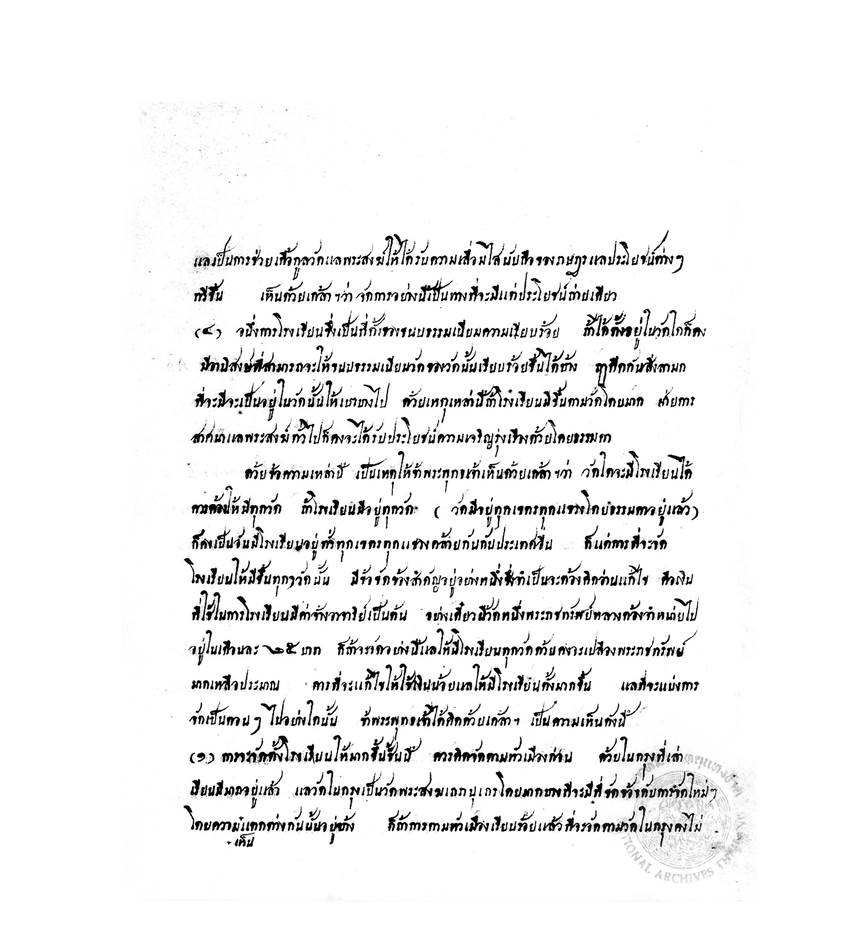 แลเป็นการช่วยเกื้อกูลวัดแลพระสงฆ์ให้ได้รับความเลื่อมใสนับถือของราษฎรแลประโยชน์ต่างๆ
ทวีขึ้น เห็นด้วยเกล้าฯว่า จัดการอย่างนี้เป็นทางที่จะมีแต่ประโยชน์ถ่ายเดียว
(๔) อนึ่งการโรงเรียนซึ่งเป็นที่ตั้งของขนบธรรมเนียมความเรียบร้อย ถ้าได้ตั้งอยู่ในวัดใดก็คง
มีอานิสงษ์ที่สามารถจะให้ขนบธรรมเนียมวัดของวัดนั้นเรียบร้อยขึ้นได้บ้าง
ที่จะมีจะเป็นอยู่ในวัดนั้นให้เบาบางไป ด้วยเหตุเหล่านี้ถ้าโรงเรียนมีขึ้นตามวัดโดยมาก ฝ่ายการ
สาศนาแลพระสงฆ์ทั่วไปก็คงจะได้รับประโยชน์ความเจริญรุ่งเรืองด้วยโดยธรรมดา
ด้วยข้อความเหล่านี้ เป็นเหตุให้ข้าพระพุทธเจ้าเห็นด้วยเกล้าฯว่า วัดใดจะมีโรงเรียนได้
ควรต้องให้มีทุกวัด ถ้าโรงเรียนมีอยู่ทุกวัด (วัดมีอยู่ทุกแขวงโดยธรรมดาอยู่แล้ว)
ก็คงเป็นอันมีโรงเรียนอยู่ทั่วทุกแขวงคล้ายกันกับประเทศอื่น ก็แต่การที่จะจัด
โรงเรียนให้มีขึ้นทุกๆวัดนั้น มีข้อขัดข้องสำคัญอยู่อย่างหนึ่งซึ่งจำเป็นจะต้องคิดอ่านแก้ไข คือเงิน
ที่ใช้ในการโรงเรียนมีค่าจ้างอาจารย์เป็นต้น อย่างเดี๋ยวนี้วัดหนึ่งพระราชทรัพย์หลวงต้องจำหน่ายไป
อยู่ในเดือนละ ๒๕ บาท ก็ถ้าจะจัดอย่างนี้แลให้มีโรงเรียนทุกวัดด้วยคงจะเปลืองพระราชทรัพย์
มากเหลือประมาณ การที่จะแก้ไขให้ใช้เงินน้อยแลให้มีโรงเรียนตั้งมากขึ้น แลที่จะแบ่งการ
จัดเป็นตอนๆ ไปอย่างใดนั้น ข้าพระพุทธเจ้าได้คิดด้วยเกล้าฯ เป็นความเห็นดังนี้
(๑) การจะจัดตั้งโรงเรียนให้มากขึ้นชั้นนี้ ควรคิดจัดตามหัวเมืองก่อน ด้วยในกรุงที่เล่า
เรียนมีมากอยู่แล้ว แลวัดในกรุงเป็นวัดพระสงฆ์ โดยมากบางทีจะมีที่ขัดข้องกับการจัดใหม่ๆ
โดยความแตกต่างกันนั้นอยู่บ้าง ก็ถ้าการตามหัวเมืองเรียบร้อยแล้วที่จะจัดตามวัดในกรุงคงไม่
เห็น
NATIONAL ARCHIVES